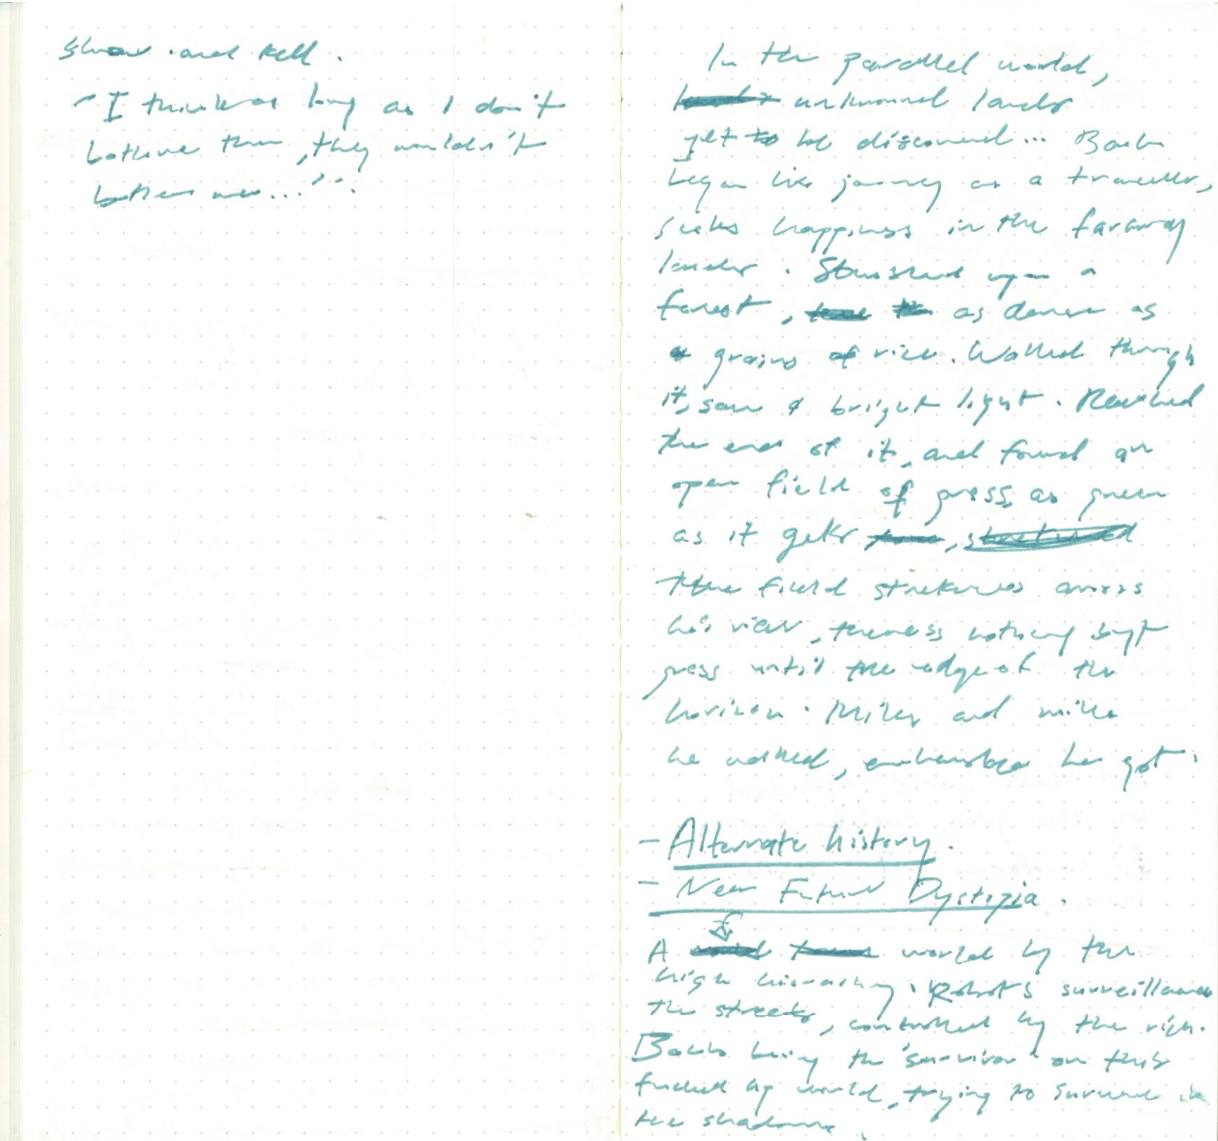 show and tell.
"I think as long as I don't
bother them, they wouldn't
bother me..."
In the parallel world,
unknown lands
yet to be discovered...
began his journey as a traveller,
seeks happiness in the faraway
lands. Stumbled upon a
forest, as dense as
grains of rice. Walked through
it, saw a bright light. Reached
the end of it, and found an
open field of grass, as green
as it gets,
The field stretches across
his view, theres nothing but
grass until the edge of the
horizon. Miles and miles
he walked, he got.
- Alternate history.
- Near Future Dystopia.
A world by the
high hierarchy. Robots surveillance
the streets, controlled by the rich.
being the "survivor" on this
fucked up world, trying to survive in
the shadows.